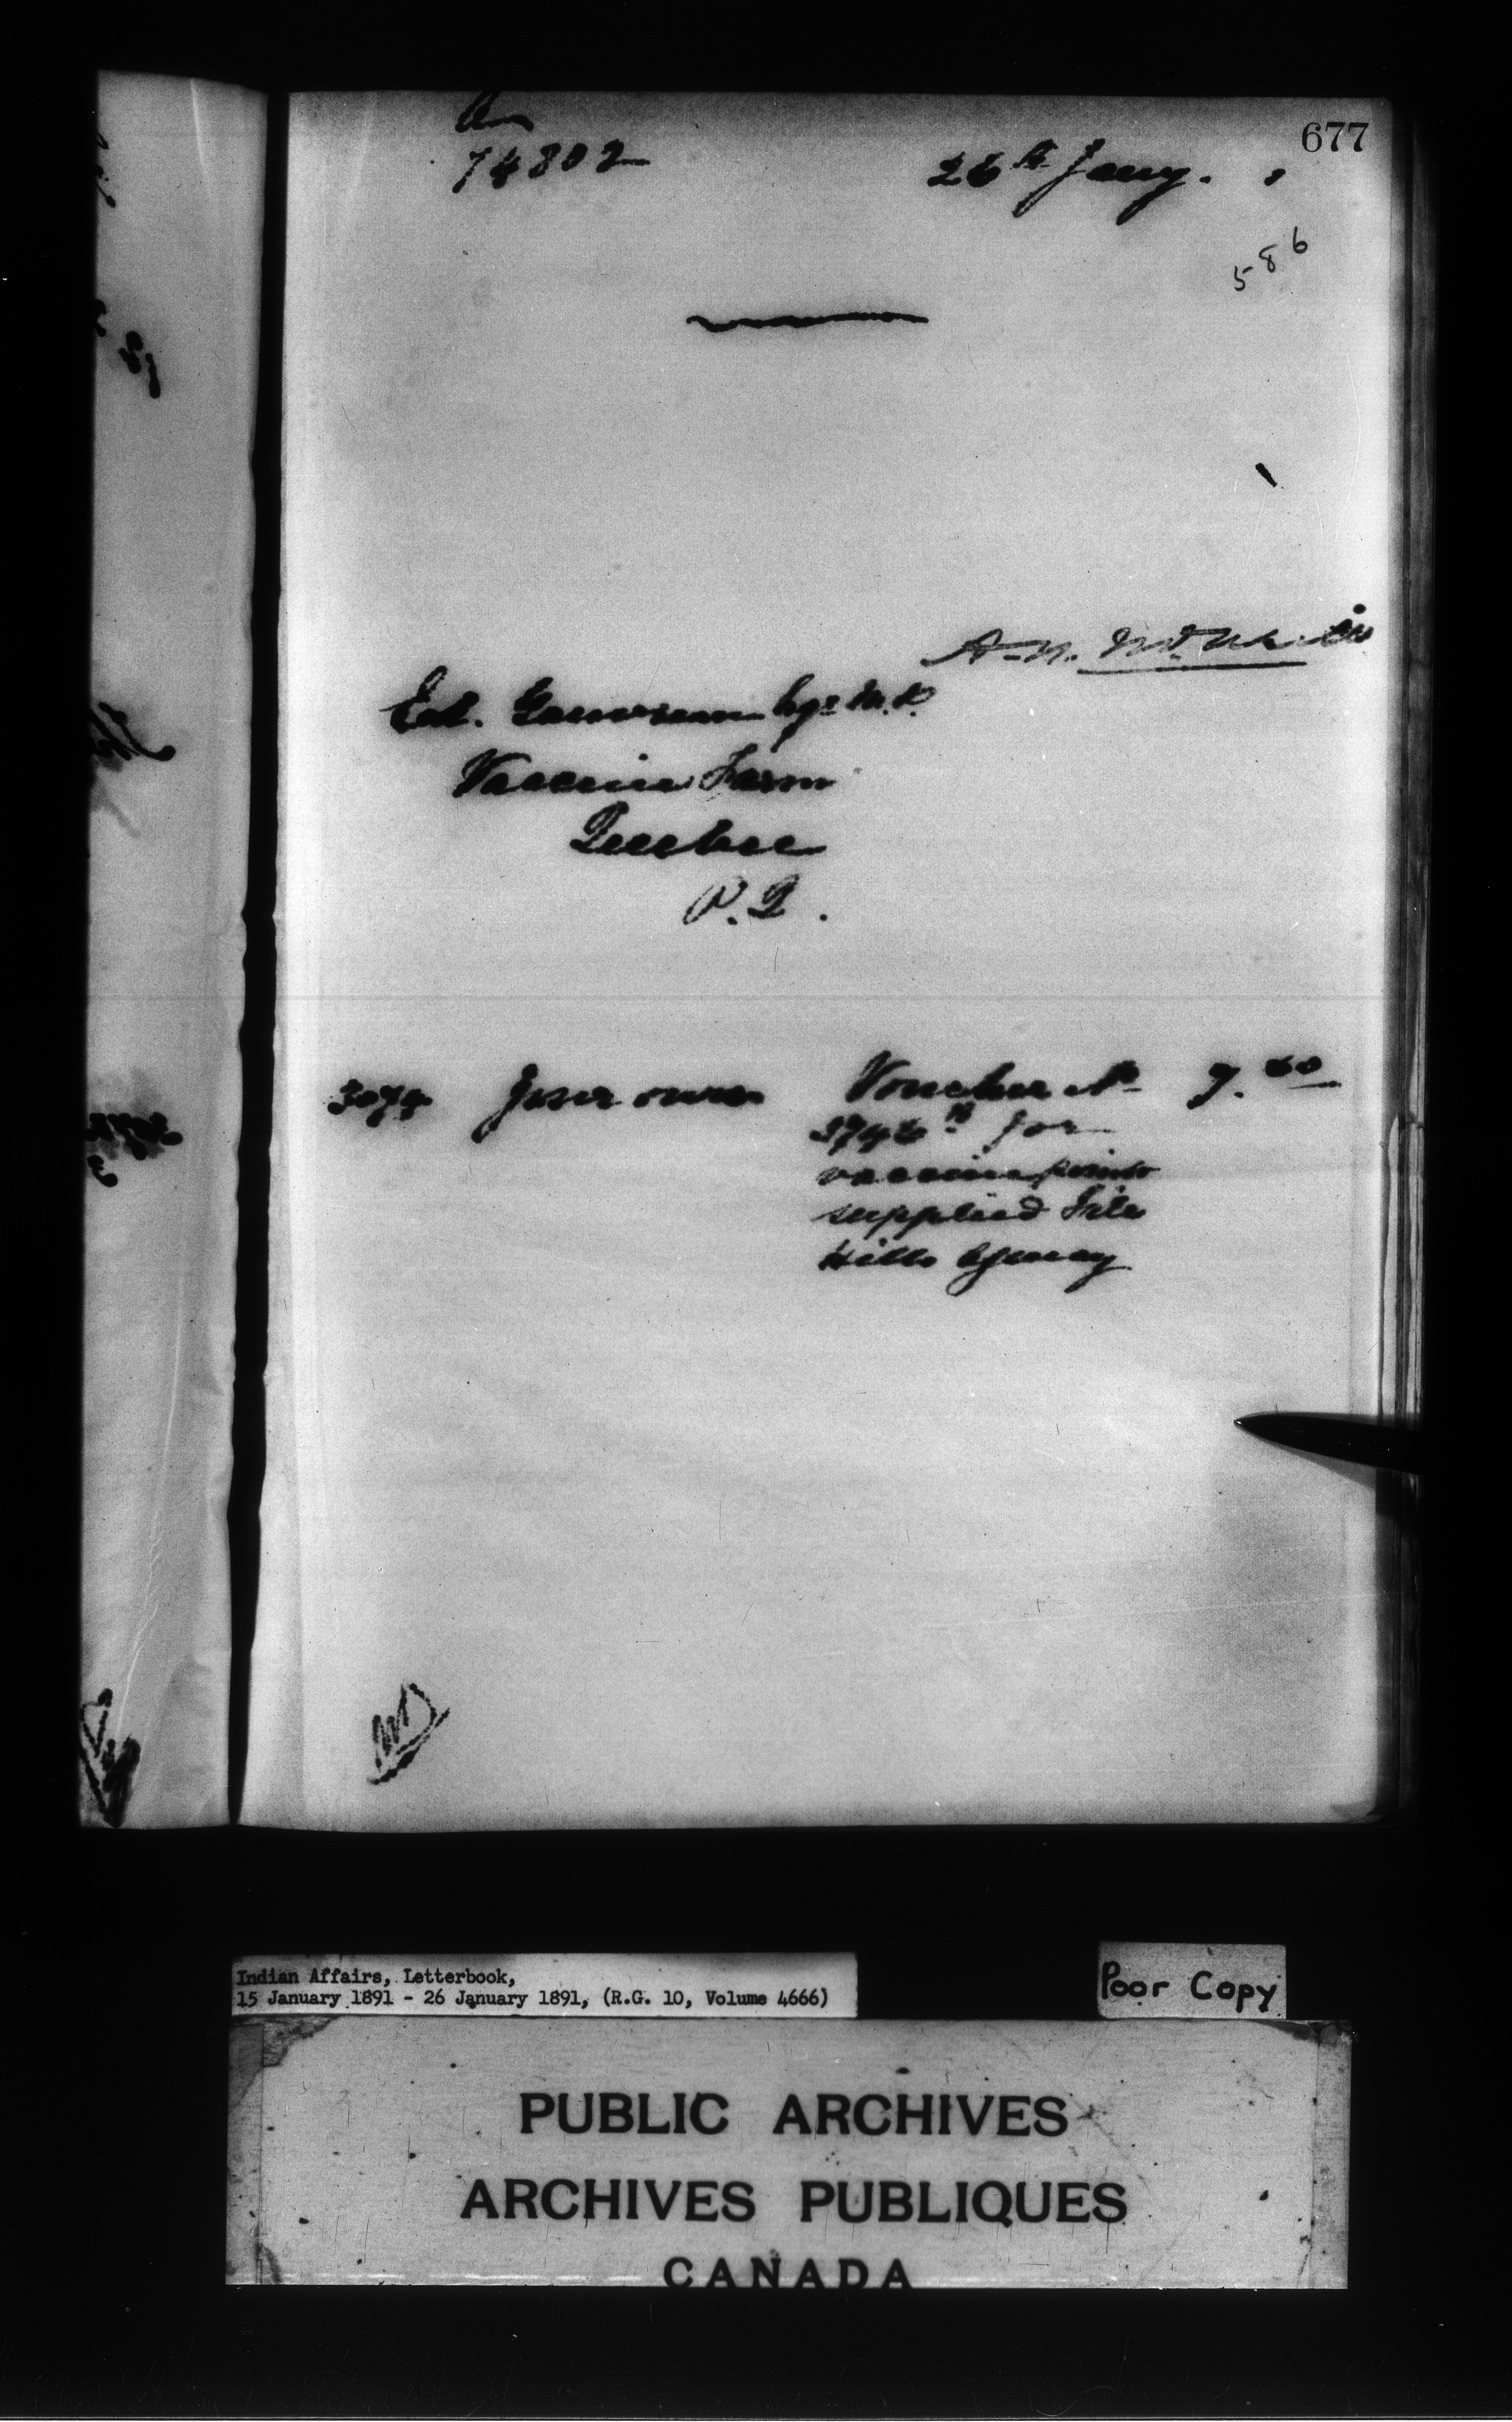 677
74802
26th Jany.
586
A.N.
Ed. Gauvreau Esqr M.D.
Vaccine Farm
Quebec
P.Q.
3079 Your own Voucher No 7.50
for
vaccine points
supplied File
Hills Agency
Indian Affairs, Letterbook,
15 January 1891 - 26 January 1891, (R.G. 10, Volume 4666)
Poor Copy
PUBLIC ARCHIVES
ARCHIVES PUBLIQUES
CANADA